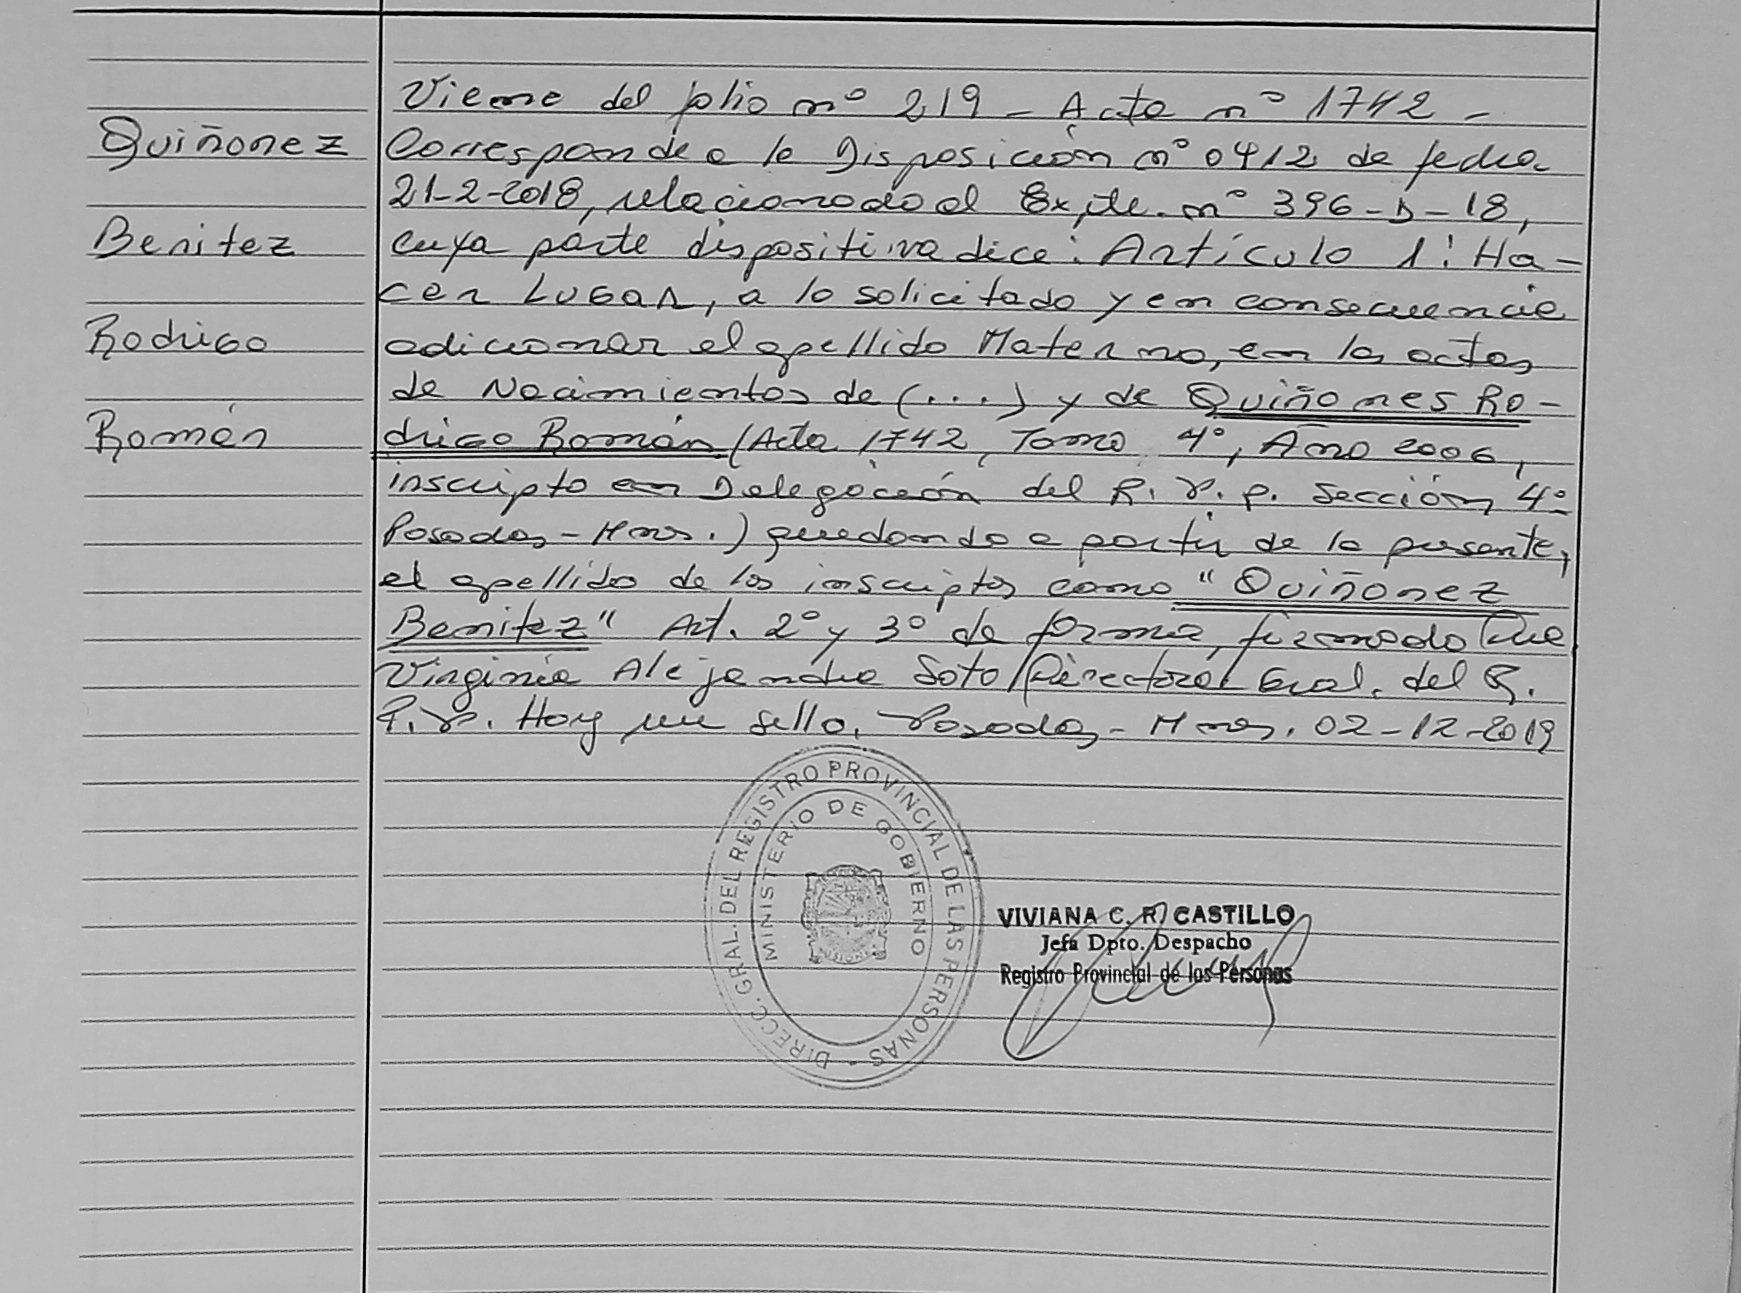 Viene del folio nº 219 - Acta nº 1742 -
Quiñonez
Corresponde a la Disposición nº 0412 de fecha
21-2-2018, relacionado al Expte. nº 396-D-18,
Benitez
cuya parte dispositiva dice: Artículo 1: Ha-
cer Lugar, a lo solicitado y en consecuencia
Rodrigo
adicionar el apellido Materno, en las actas
de Nacimientos de (...) y de Quiñones Ro-
Román
drigo Román (Acta 1742, Tomo 4º, Año 2006,
inscripto en Delegación del R. P. P. Sección 4º
Posadas - Mnes.) quedando a partir de la presente,
el apellido de los inscriptos como "Quiñonez
Benitez" Art. 2º y 3º de forma, firmado
Virginia Alejandra Soto Directora Gral. del R.
P. P. Hay un sello. Posadas - Mnes. 02-12-2019
DIRECC. GRAL. DEL REGISTRO PROVINCIAL DE LAS PERSONAS -
MINISTERIO DE GOBIERNO
VIVIANA C. R. CASTILLO
Jefa Dpto. Despacho
Registro Provincial de las Personas